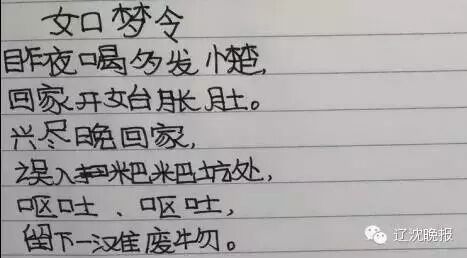 如梦令
昨夜喝多发憷,
回家开始胀肚。
兴尽晚回家,
误入粑粑坑处,
呕吐、呕吐,
留下一滩废物。
辽沈晚报